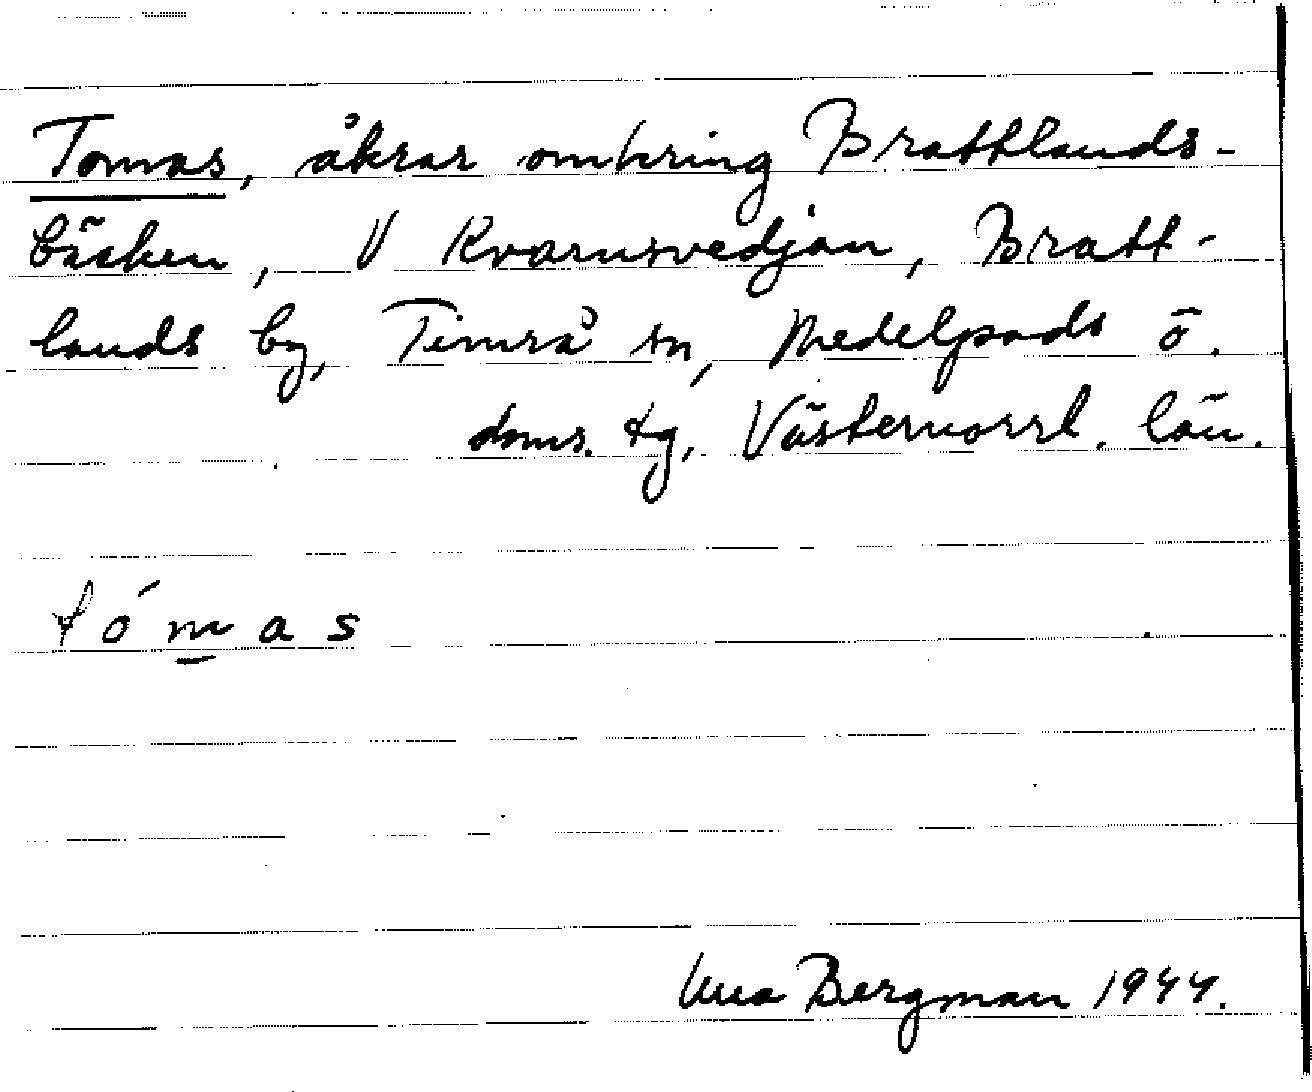 Tomas, åkrar omkring Brattlands-
bäcken, V Kvarnsvedjan, Bratt-
lands by, Timrå sn, Medelpads ö.
doms. tg, Västernorrl. län.
tómas
Bergman 1944.